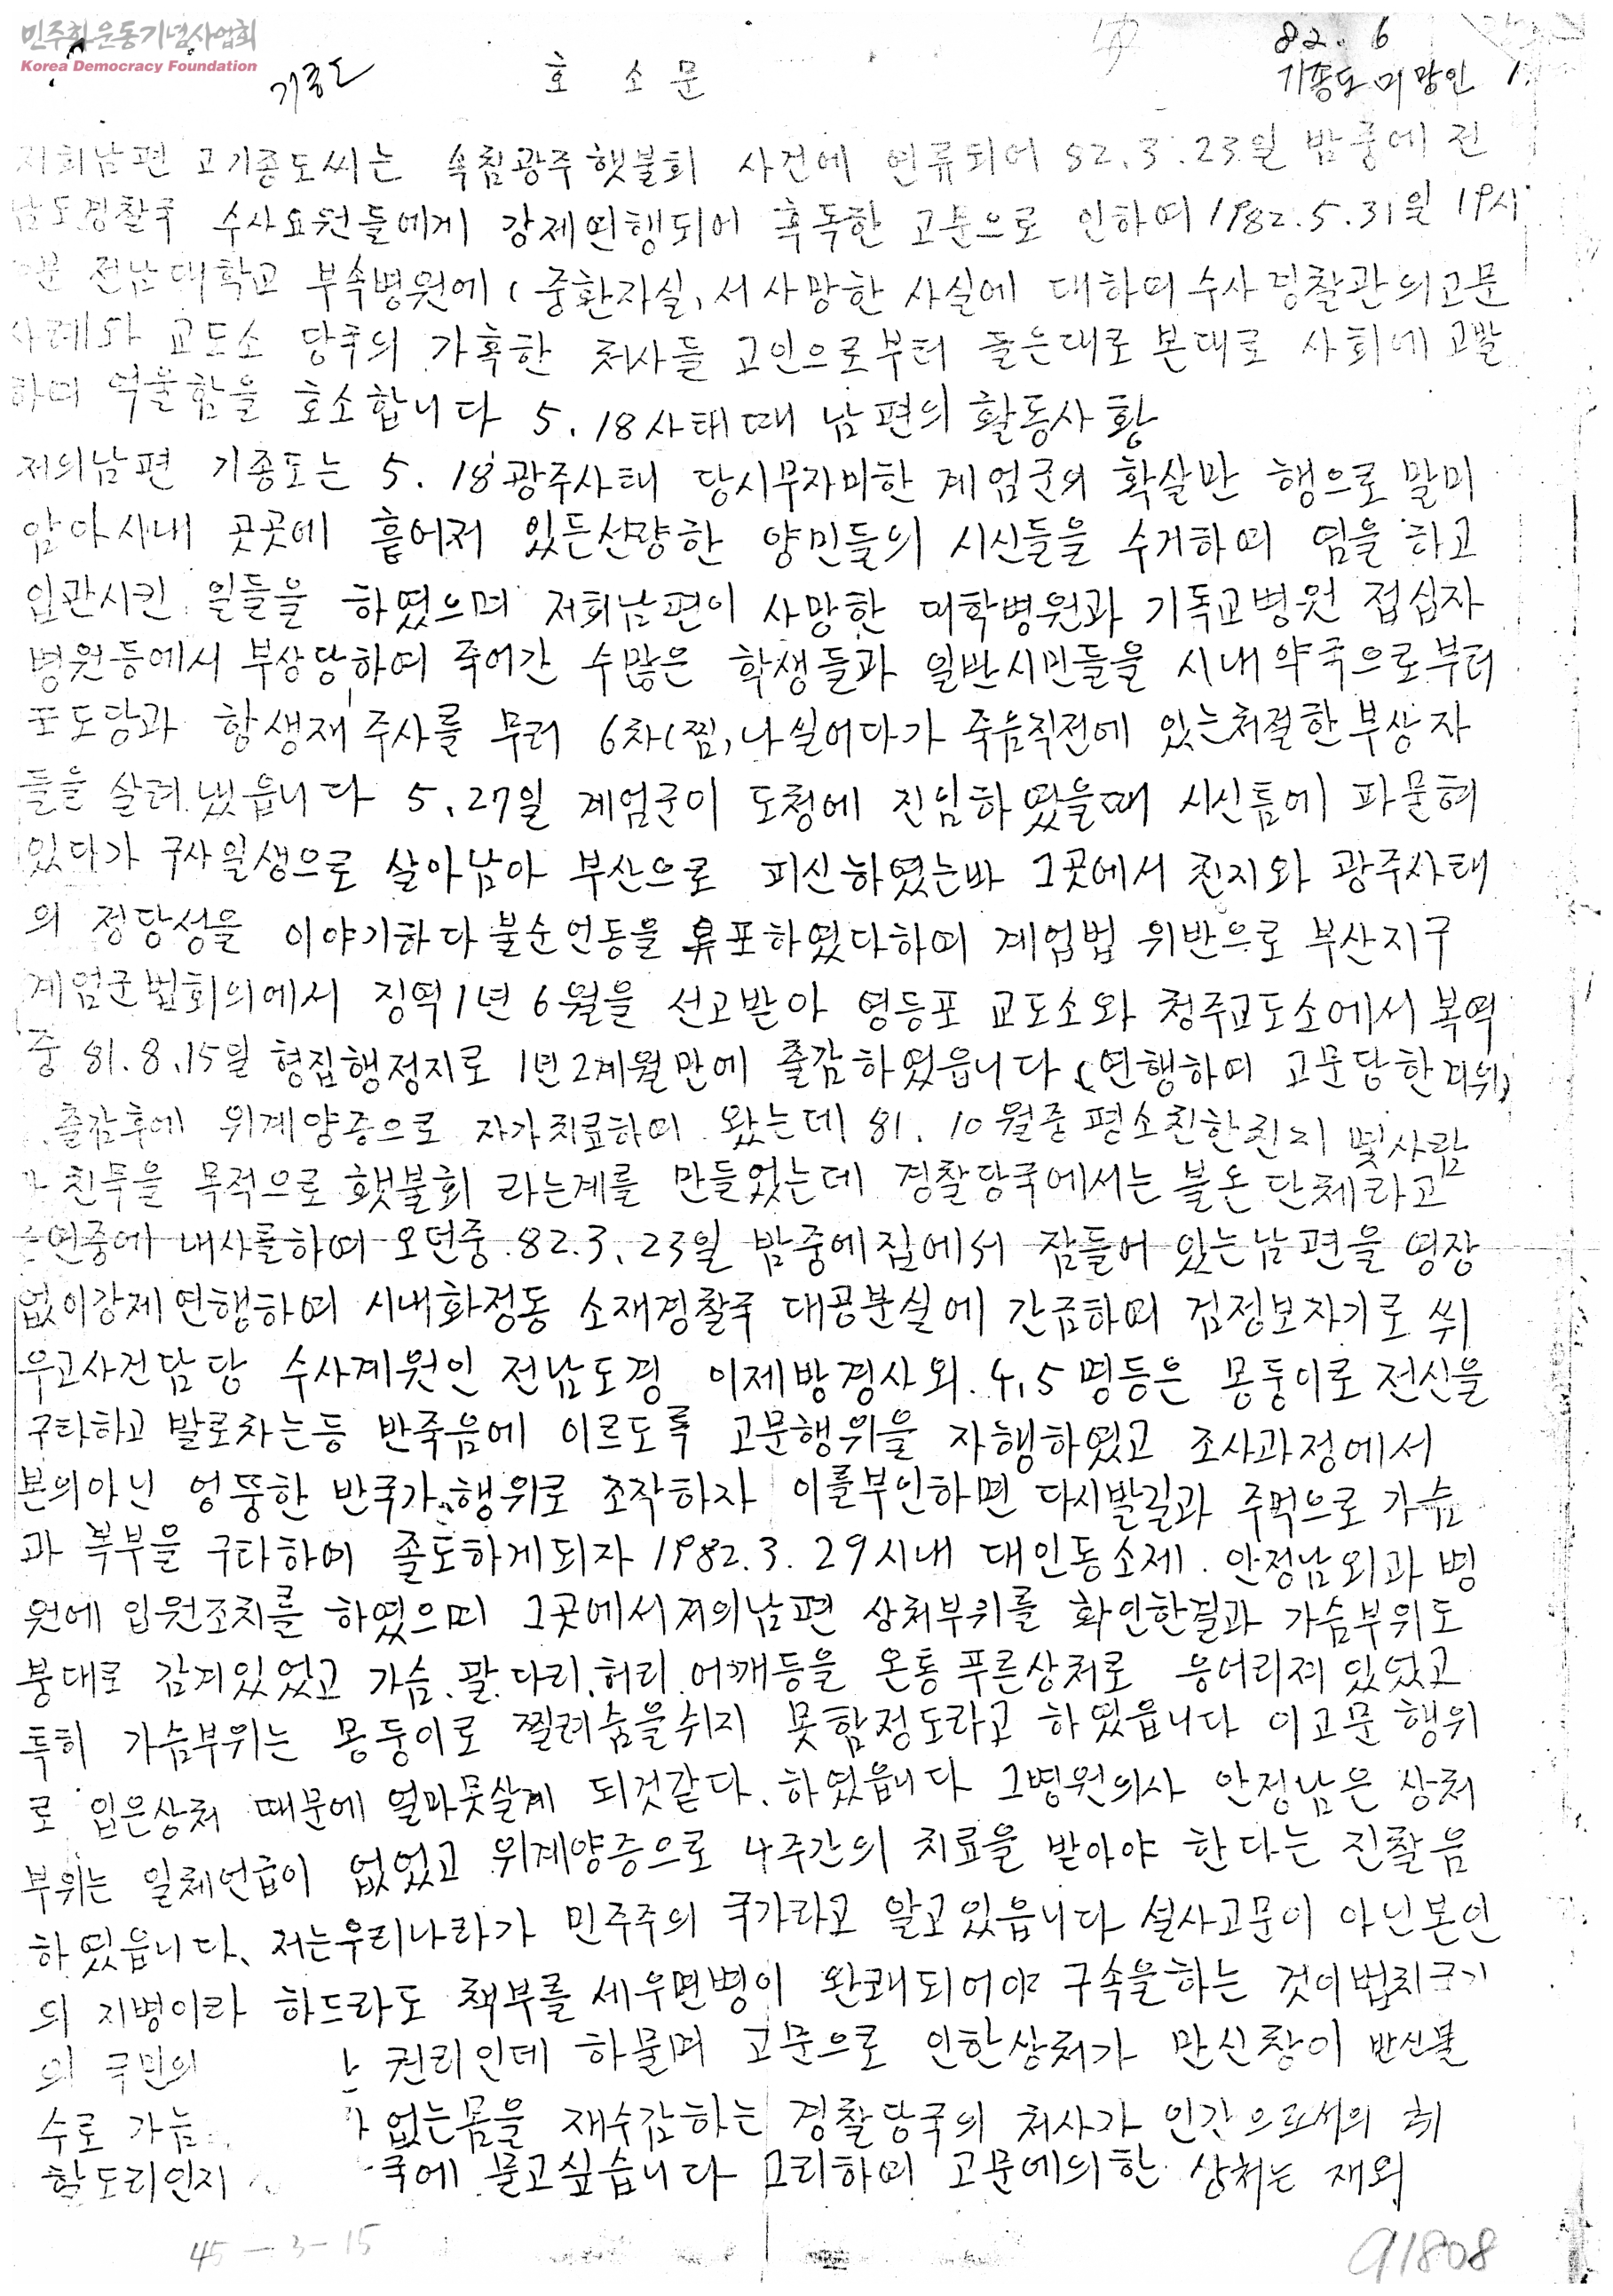 민주화운동기념사업회
Korea Democracy Foundation
82. 6
기종도
호 소 문
기종도 미망인
저희남편 고기종도씨는 속칭광주횃불회 사건에 연류되어 82.3.23일 밤중에 전
남도경찰국 수사요원들에게 강제연행되어 혹독한 고문으로 인하여 1982.5.31일 19시
분 전남대학교 부속병원에(중환자실,서사망한 사실에 대하여 수사경찰관의고문
사례와 교도소 당국의 가혹한 처사들 고인으로부터 들은대로 본대로 사회에 고발
하며 억울함을 호소합니다 5.18사태때 남편의 활동사황
저의남편 기종도는 5.18광주사태 당시무자비한 계엄군의 확살만 행으로 말미
암아시내 곳곳에 흩어저 있든선량한 양민들의 시신들을 수거하여 염을 하고
입관시킨 일들을 하였으며 저희남편이 사망한 대학병원과 기독교병원 접십자
병원등에서 부상당하여 죽어간 수많은 학생들과 일반시민들을 시내약국으로부터
포도당과 항생재 주사를 무려 6차(찜,나실어다가 죽음직전에 있는처절한부상자
들을 살려 냈읍니다 5.27일 계엄군이 도청에 진입하였을때 시신틈에 파묻혀
있다가 구사일생으로 살아남아 부산으로 피신하였는바 그곳에서 친지와 광주사태
의 정당성을 이야기하다 불순언동을 유포하였다하여 계엄법 위반으로 부산지구
계엄군법회의에서 징역1년 6월을 선고받아 영등포 교도소와 청주교도소에서 복역
중 81.8.15일 형집행정지로 1년2계월만에 출감하였읍니다 (연행하여 고문당한 )
출감후에 위계양증으로 자가치료하여 왔는데 81. 10월중 평소친한친지 몇사람
가 친목을 목적으로 횃불회 라는계를 만들었는데 경찰당국에서는 불온단체라고
은연중에 내사를하여 오던중 82.3.23일 밤중에집에서 잠들어 있는남편을 영장
없이강제연행하여 시내화정동 소재경찰국 대공분실에 간금하여 검정보자기로 쒸
우고사건담당 수사계원인 전남도경 이제방경사외 4,5명등은 몽둥이로 전신을
구타하고 발로차는등 반죽음에 이르도록 고문행위을 자행하였고 조사과정에서
본의아닌 엉뚱한 반국가 행위로 조작하자 이를부인하면 다시발길과 주먹으로 가슴
과 복부을 구타하여 졸도하게되자 1982.3.29시내 대인동소제 안정남외과 병
원에 입원조치를 하였으며 그곳에서저의남편 상처부위를 확인한결과 가슴부위도
붕대로 감겨있었고 가슴.팔.다리.허리.어깨등을 온통 푸른상처로 응어리져 있었고
특히 가슴부위는 몽둥이로 찔려숨을쉬지 못할정도라고 하였읍니다 이고문 행위
로 입은상처 때문에 얼마못살게 되것같다. 하였읍니다 그병원의사 안정남은 상처
부위는 일체언급이 없었고 위계양증으로 4주간의 치료을 받아야 한다는 진찰음
하였읍니다. 저는우리나라가 민주주의 국가라고 알고있읍니다 설사고문이 아닌본인
의 지병이라 하드라도 책부를 세우면병이 완쾌되어야 구속을하는 것이법치국가
의 국민의 권리인데 하물며 고문으로 인한상처가 만신창이 반신불
수로 가눌 없는몸을 재수감하는 경찰당국의 처사가 인간으로서의 취
할도리인지 국에 묻고싶습니다 그리하여 고문에의한 상처는 재외
45-3-15
91808